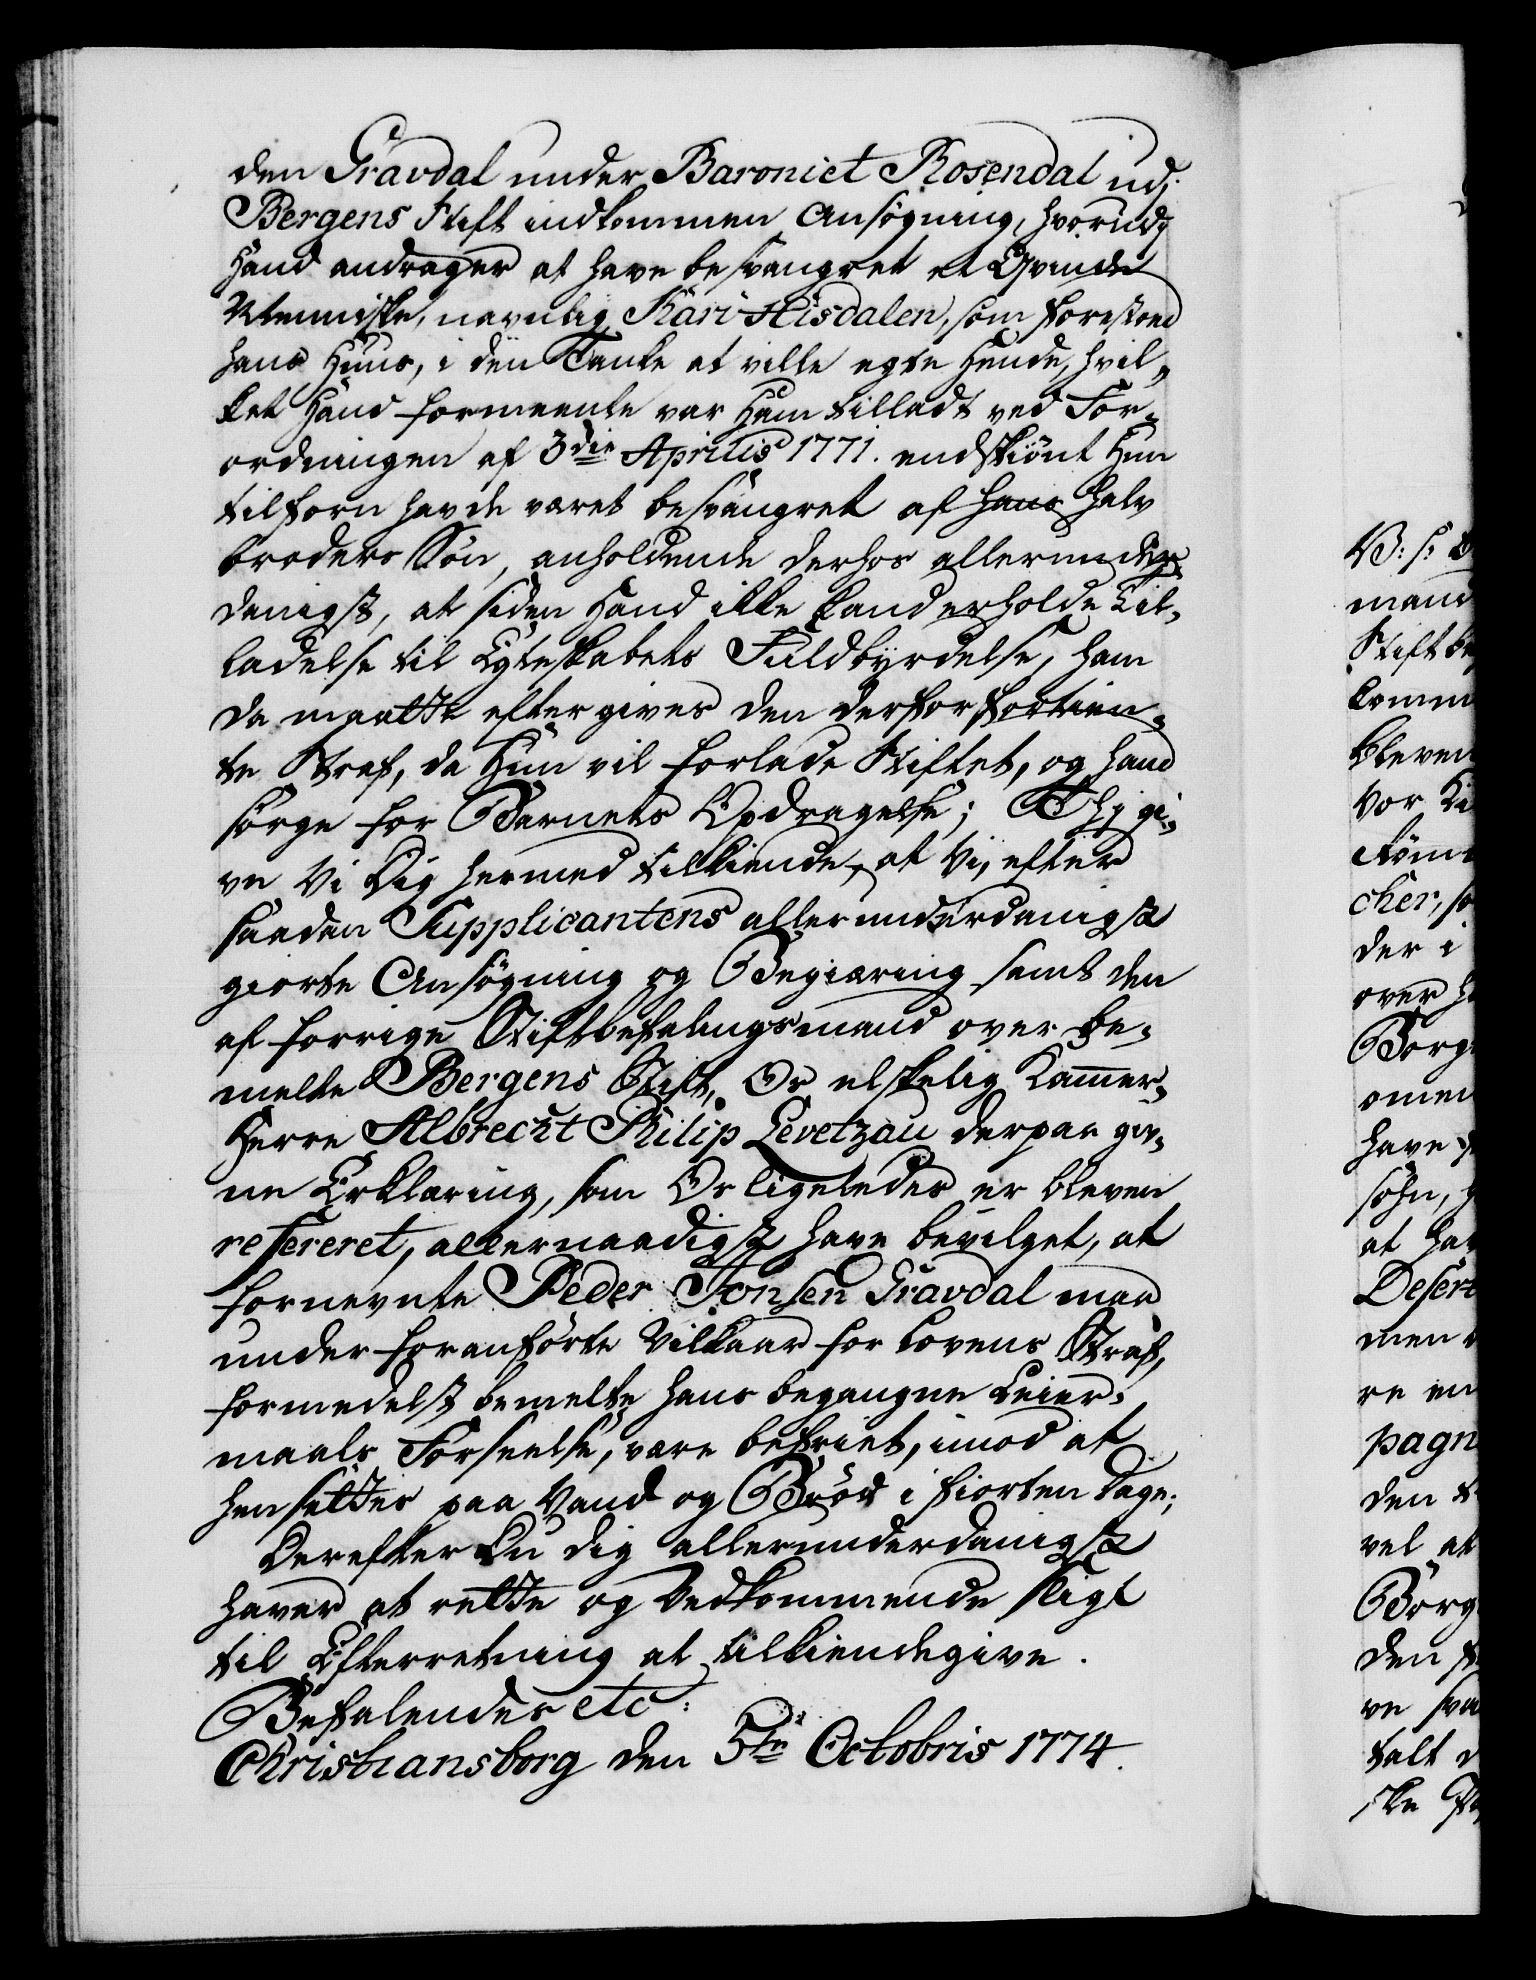 den Gravdal under Baroniet Rosendal udj
Bergens Stift indkommen Ansøgning, hvorudj
Hand andrager at have besvangret et Qvinde
Menniske, navnlig Kari Hisdalen, som forestoed
hans Huus, i den Tanke at ville egte Hende, hvil-
ket Hand formeente var Ham tilladt ved For-
ordningen af 3die Aprilis 1771. endskiønt Hun
tilforn havde været besvangret af hans halv
broders Søn, anholdende derhos allerunder-
danigst, at siden Hand ikke kand erholde Til-
ladelse til Egteskabets Fuldbyrdelse, ham
da maatte eftergives den derfor fortien-
te Straf, da Hun vil forlade Stiftet, og hand
sørge for Barnets Opdragelse; Thj gi-
ve Vi Dig hermed tilkiende, at Vi, efter
saadan Supplicantens allerunderdanigst
giorte Ansøgning og Begiæring samt den
af forrige Stiftbefalingsmand over be-
melte Bergens Stift, Os elskelig Kammer-
Herre Albrecht Philip Levetzau derpaa giv-
ne Erklæring, som Os ligeledes er bleven
refereret, allernaadigst have bevilget, at
fornevnte Peder Jonsen Gravdal maa
under foranførte Vilkaar for Lovens Straf,
formedelst bemelte hans begangne Leier-
maals Forseelse, være befriet, imod at
hensættes paa Vand og Brød i fiorten Dage;
Derefter Du dig allerunderdanigst
haver at rette og Vedkommende sligt
til Efterretning at tilkiendegive.
Befalendes etc:
Christiansborg den 5te Octobris 1774.
V: s:
mand
Stift
komm
bleven
vor
cher, so
der i
over
Borg
omen
have
søhn,
at ha
Desert
men
re en
pagn
den
vel at
Borg
den
ve
talt
ske